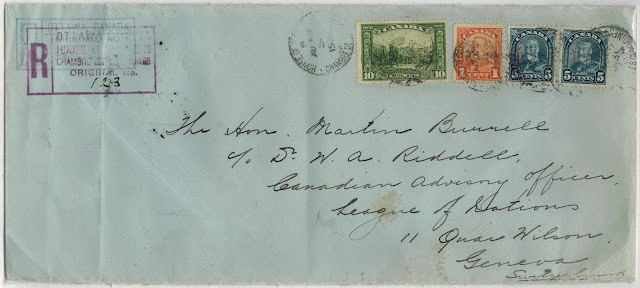 OTTAWA, CANADA
OTTAWA
HOUSE
CHAMBRE
R
ORIGINAL No.
123
CANADA
10 10
CENTS
CANADA
1 CENT 1
CANADA
5 CENTS 5
CANADA
5 CENTS 5
The Hon. Martin Burrell
c/o Dr. W. A. Riddell,
Canadian Advisory Officer,
League of Nations
11 Quai Wilson.
Geneva
Switzerland